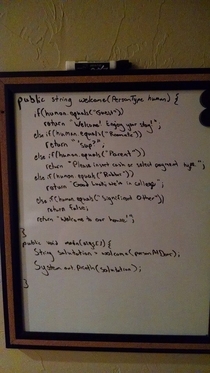 public string welcome(PersonType human) {
if(human.equals("Guest"))
return "Welcome! Enjoy your stay!";
else if(human.equals("Roommate"))
return "'sup?";
else if(human.equals("Parent"))
return "Please insert cash or select payment type";
else if(human.equals("Robber"))
return "Good luck, we're in college";
else if(human.equals("Significant Other"))
return false;
return "Welcome to our house!";
}
public void main(args[]) {
String salutation = welcome(personAtDoor);
System.out.println(salutation);
}